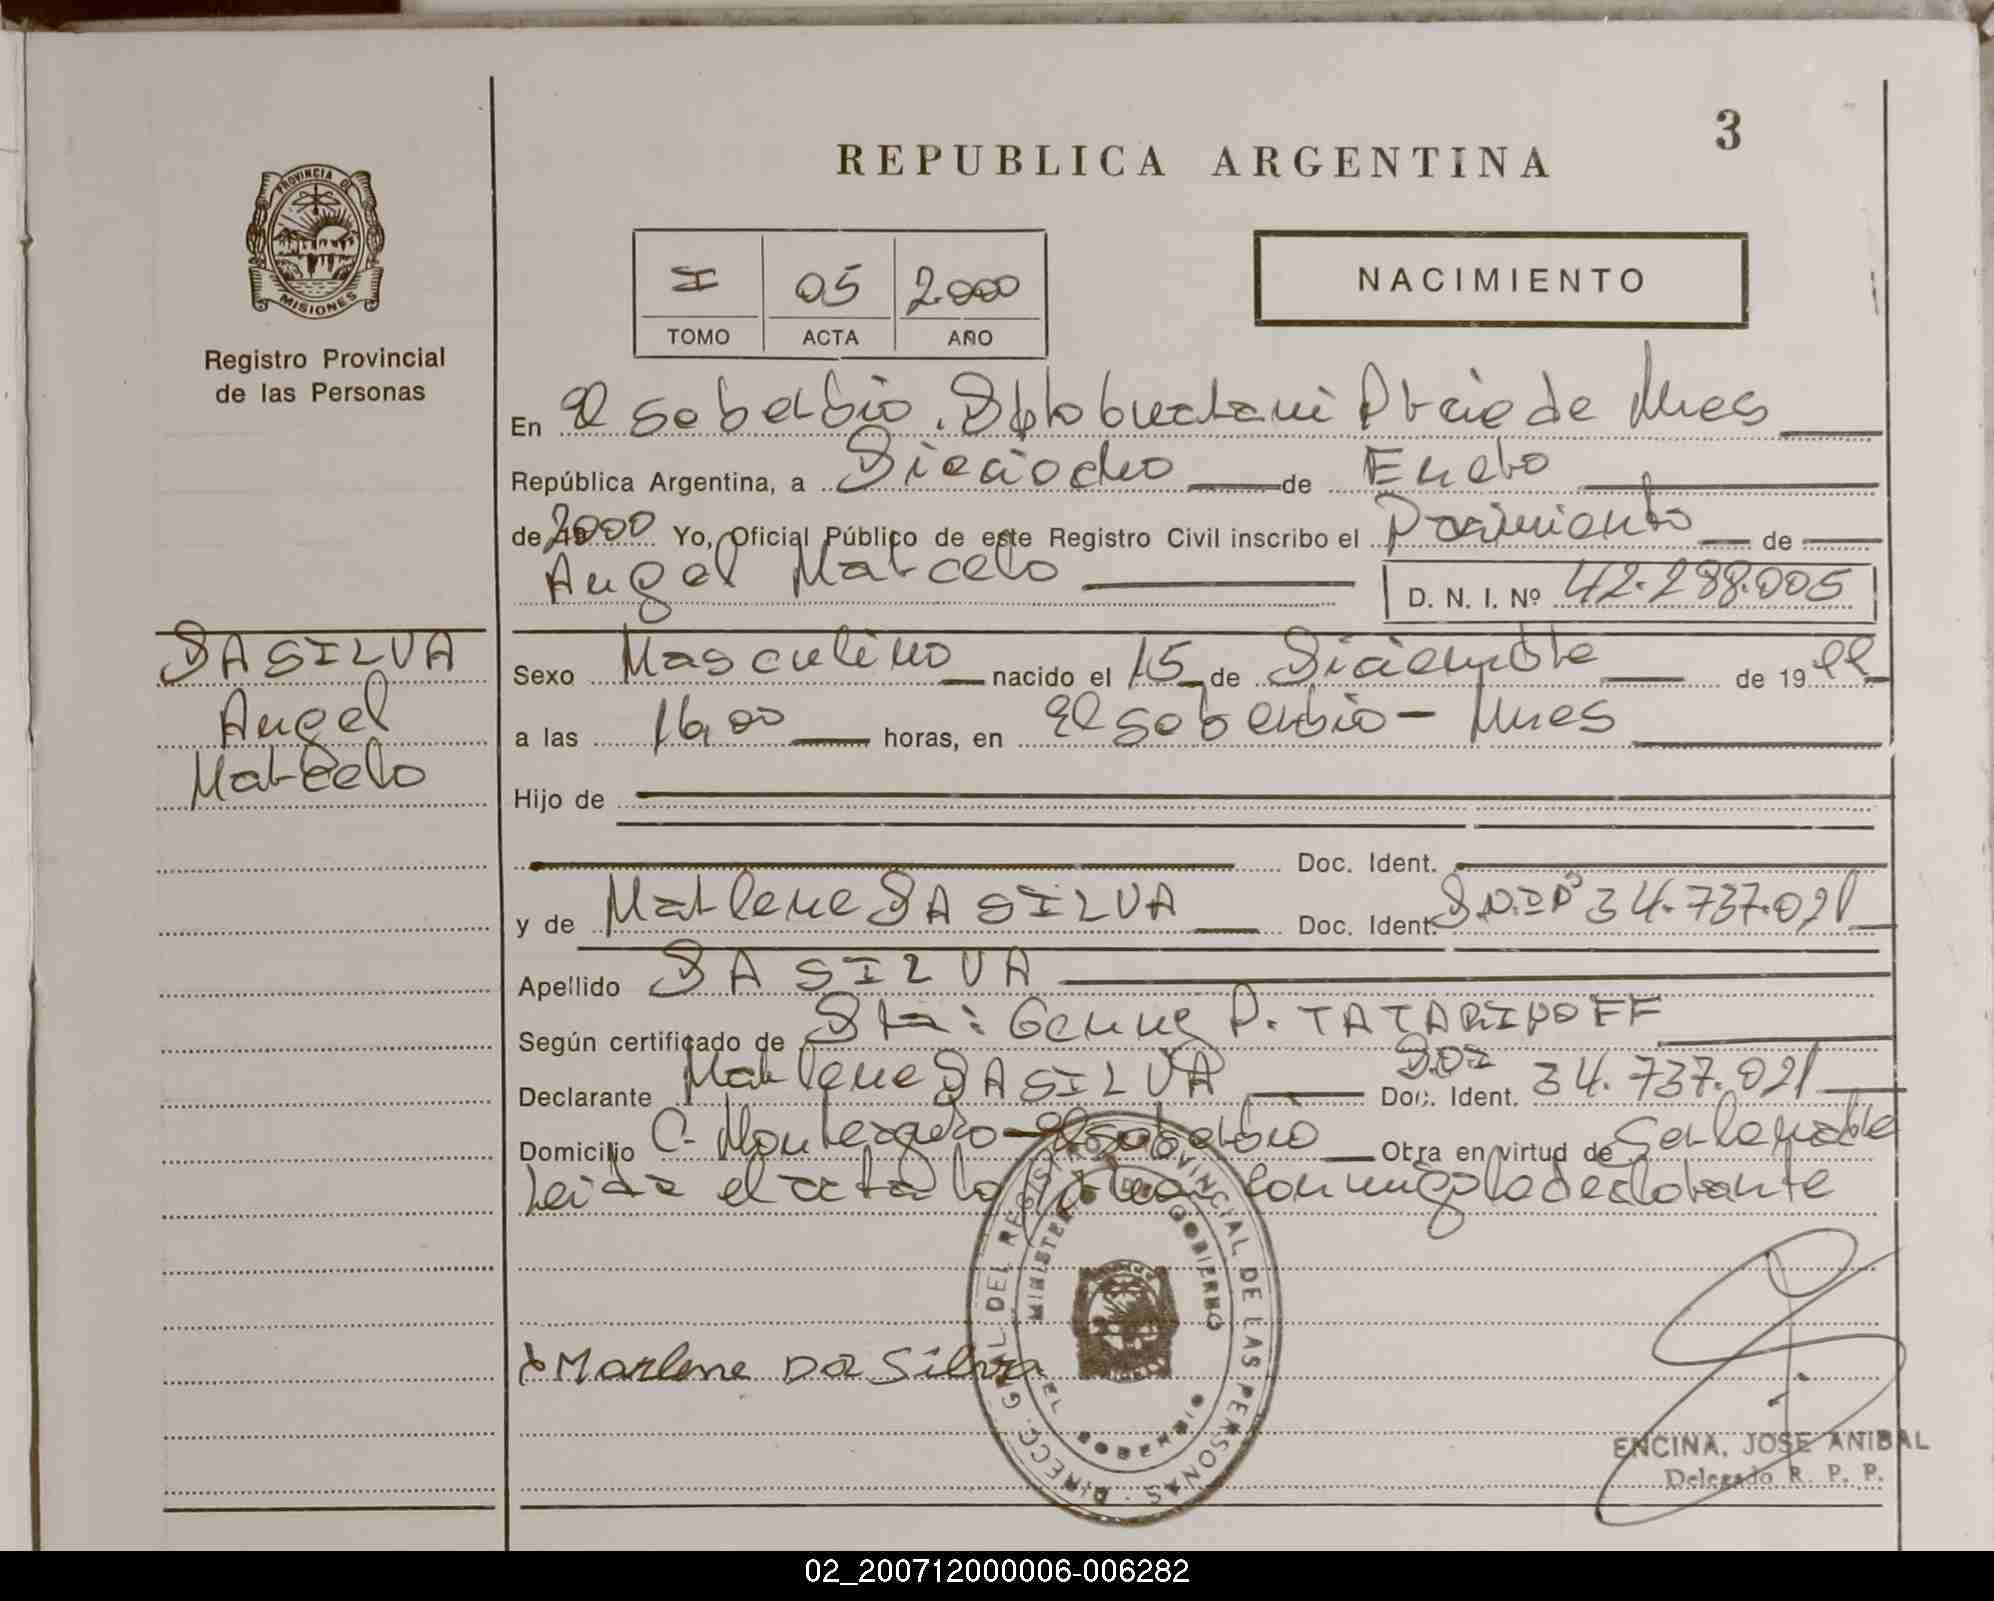 3
REPUBLICA ARGENTINA
PROVINCIA DE
MISIONES
Registro Provincial
de las Personas
I 05 2.000
TOMO ACTA AÑO
NACIMIENTO
En El Soberbio. Dpto Pcia de Mnes
República Argentina, a Dieciocho de Enero
de 2000 Yo, Oficial Público de este Registro Civil inscribo el Nacimiento de
Angel Marcelo D. N. I. Nº 42.288.005
DA SILVA
Angel
Marcelo
Sexo Masculino nacido el 15 de Diciembre de 19 99
a las 16,00 horas, en El Soberbio - Mnes
Hijo de
Doc. Ident.
y de Marlene DA SILVA Doc. Ident. D.N.I Nº 34.737.021
Apellido DA SILVA
Según certificado de Dra: Genny N. TATARINOFF
Declarante Marlene DA SILVA Doc. Ident. DNI 34.737.021
Domicilio C. Monteagudo - El Soberbio Obra en virtud de
Leida el acta la conmigo la declarante
Marlene Da Silva
DIRECC. GRAL. DEL REGISTRO PROVINCIAL DE LAS PERSONAS
MINISTERIO DE GOBIERNO
EL SOBERBIO
ENCINA, JOSE ANIBAL
Delegado R. P. P.
02_200712000006-006282